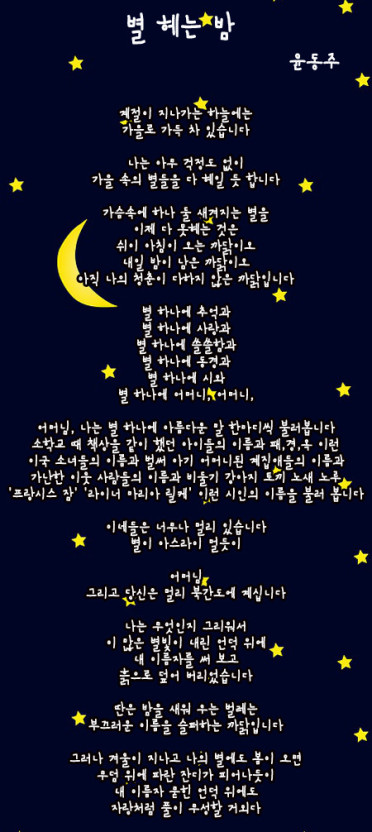 별 헤는 밤
윤동주
계절이 지나가는 하늘에는
가을로 가득 차 있습니다
나는 아무 걱정도 없이
가을 속의 별들을 다 헤일 듯 합니다
가슴속에 하나 둘 새겨지는 별을
이제 다 못헤는 것은
쉬이 아침이 오는 까닭이오
내일 밤이 남은 까닭이오
아직 나의 청춘이 다하지 않은 까닭입니다
별 하나에 추억과
별 하나에 사랑과
별 하나에 쓸쓸함과
별 하나에 동경과
별 하나에 시와
별 하나에 어머니, 어머니,
어머님, 나는 별 하나에 아름다운 말 한마디씩 불러봅니다
소학교 때 책상을 같이 했던 아이들의 이름과 패,경,옥 이런
이국 소녀들의 이름과 벌써 아기 어머니된 계집애들의 이름과
가난한 이웃 사람들의 이름과 비둘기 강아지 토끼 노새 노루
'프랑시스 잠' '라이너 마리아 릴케' 이런 시인의 이름을 불러 봅니다
이네들은 너무나 멀리 있습니다
별이 아스라이 멀듯이
어머님,
그리고 당신은 멀리 북간도에 계십니다
나는 무엇인지 그리워서
이 많은 별빛이 내린 언덕 위에
내 이름자를 써 보고
흙으로 덮어 버리었습니다
딴은 밤을 새워 우는 벌레는
부끄러운 이름을 슬퍼하는 까닭입니다
그러나 겨울이 지나고 나의 별에도 봄이 오면
무덤 위에 파란 잔디가 피어나듯이
내 이름자 묻힌 언덕 위에도
자랑처럼 풀이 무성할 거외다